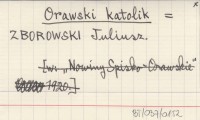 Orawski katolik =
ZBOROWSKI Juliusz.
[w: „Nowiny Spisko-Orawskie"
1920.]